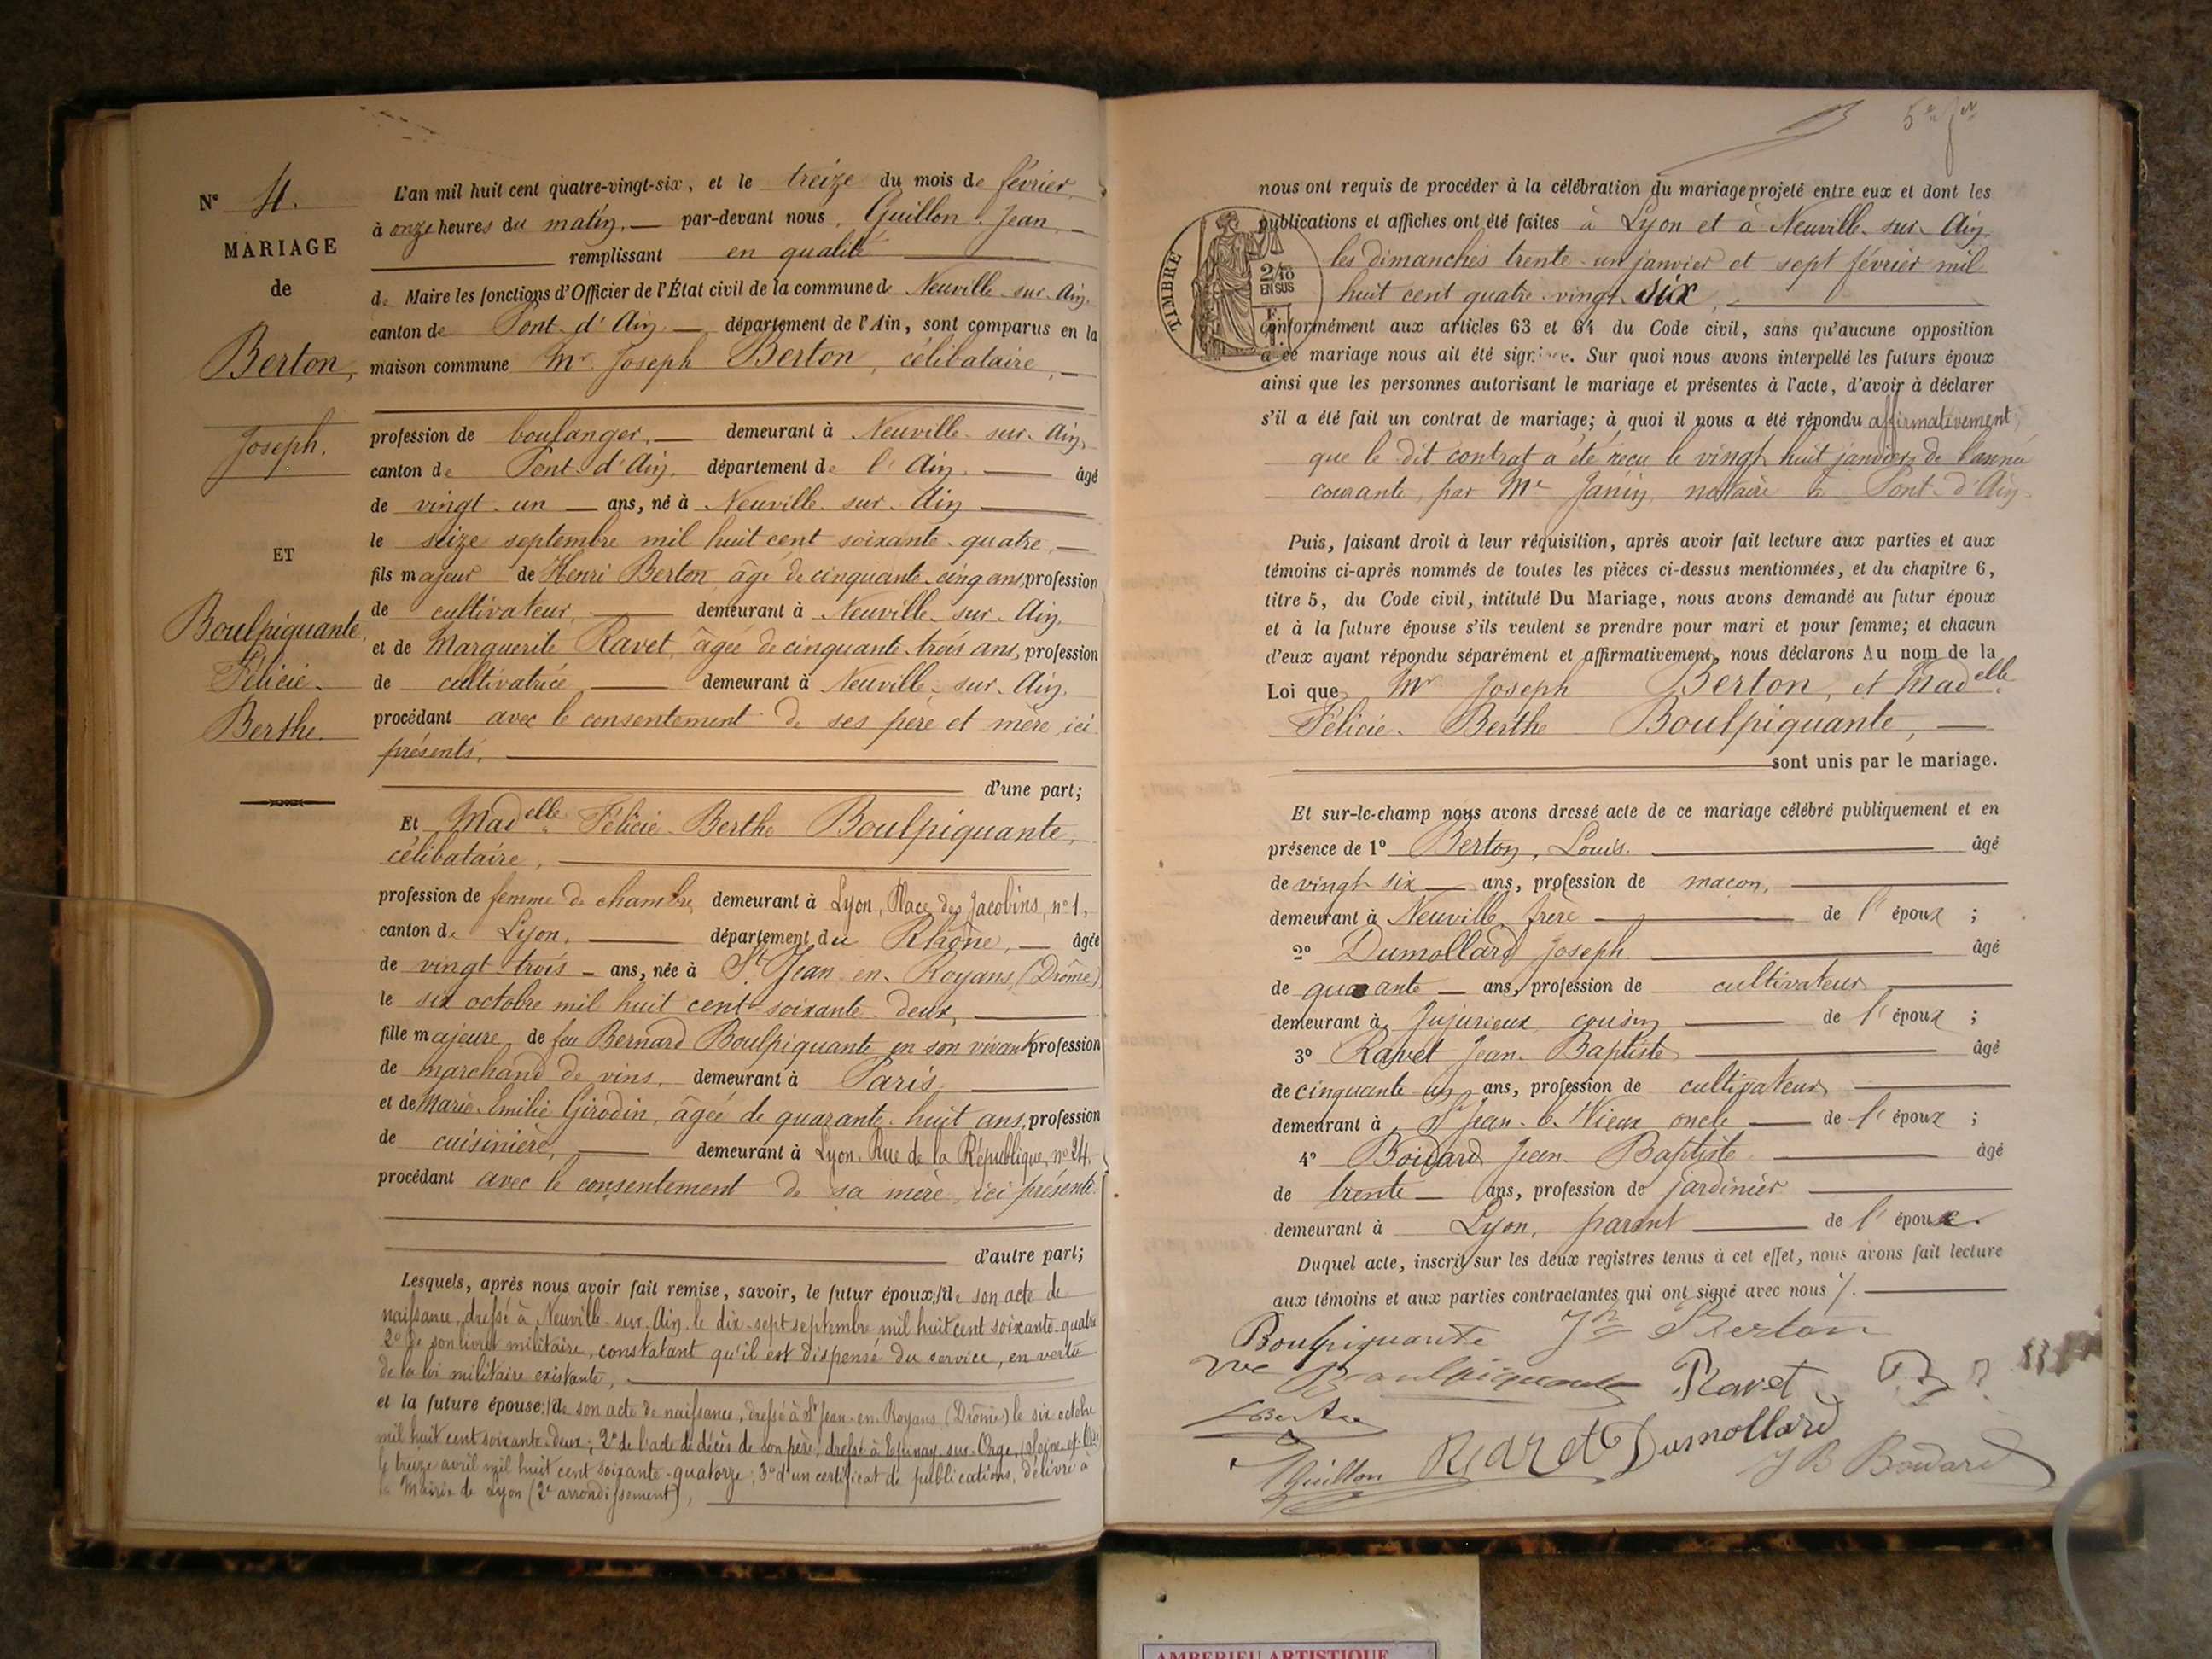 N° 4.
MARIAGE
de
Berton,
Joseph.
ET
Boulpiquante,
Félicie
Berthe.
L'an mil huit cent quatre-vingt-six, et le treize du mois de février,
à onze heures du matin, par-devant nous, Guillon Jean,
remplissant en qualité
de Maire les fonctions d'Officier de l'État civil de la commune de Neuville-sur-Ain,
canton de Pont-d'Ain, département de l'Ain, sont comparus en la
maison commune Mr Joseph Berton, célibataire,
profession de boulanger, demeurant à Neuville-sur-Ain,
canton de Pont-d'Ain, département de l'Ain, âgé
de vingt-un ans, né à Neuville-sur-Ain
le seize septembre mil huit cent soixante-quatre,
fils majeur de Henri Berton âgé de cinquante-cinq ans, profession
de cultivateur, demeurant à Neuville-sur-Ain,
et de Marguerite Ravet, âgée de cinquante-trois ans, profession
de cultivatrice demeurant à Neuville-sur-Ain,
procédant avec le consentement de ses père et mère, ici
présents,
d'une part;
Et Madelle Félicie Berthe Boulpiquante,
célibataire,
profession de femme de chambre, demeurant à Lyon, Place des Jacobins, n° 1,
canton de Lyon, département du Rhône, âgée
de vingt-trois ans, née à St Jean-en-Royans, (Drôme)
le six octobre mil huit cent soixante-deux,
fille majeure de feu Bernard Boulpiquante en son vivant profession
de marchand de vins, demeurant à Paris,
et de Marie-Emilie Girodin, âgée de quarante-huit ans, profession
de cuisinière, demeurant à Lyon, Rue de la République, n° 24,
procédant avec le consentement de sa mère, ici présente
d'autre part;
Lesquels, après nous avoir fait remise, savoir, le futur époux: 1° de son acte de
naissance, dressé à Neuville-sur-Ain le dix-sept septembre mil huit cent soixante-quatre
2° de son livret militaire, constatant qu'il est dispensé du service, en vertu
de la loi militaire existante,
et la future épouse: 1° de son acte de naissance, dressé à St Jean-en-Royans (Drôme) le six octobre
mil huit cent soixante-deux; 2° de l'acte de décès de son père, dressé à Epinay-sur-Orge, (Seine-et-Oise)
le treize avril mil huit cent soixante-quatorze; 3° d'un certificat de publications, délivré à
la Mairie de Lyon (2e arrondissement),
TIMBRE
2/10
EN SUS
nous ont requis de procéder à la célébration du mariage projeté entre eux et dont les
publications et affiches ont été faites à Lyon et à Neuville-sur-Ain
les dimanches trente-un janvier et sept février mil
huit cent quatre-vingt-six,
conformément aux articles 63 et 64 du Code civil, sans qu'aucune opposition
à ce mariage nous ait été signifiée. Sur quoi nous avons interpellé les futurs époux
ainsi que les personnes autorisant le mariage et présentes à l'acte, d'avoir à déclarer
s'il a été fait un contrat de mariage; à quoi il nous a été répondu affirmativement,
que le dit contrat a été reçu le vingt-huit janvier de l'année
courante, par Me Janin, notaire à Pont-d'Ain
Puis, faisant droit à leur réquisition, après avoir fait lecture aux parties et aux
témoins ci-après nommés de toutes les pièces ci-dessus mentionnées, et du chapitre 6,
titre 5, du Code civil, intitulé Du Mariage, nous avons demandé au futur époux
et à la future épouse s'ils veulent se prendre pour mari et pour femme; et chacun
d'eux ayant répondu séparément et affirmativement, nous déclarons Au nom de la
Loi que Mr Joseph Berton, et Madelle
Félicie Berthe Boulpiquante,
sont unis par le mariage.
Et sur-le-champ nous avons dressé acte de ce mariage célébré publiquement et en
présence de 1° Berton, Louis. âgé
de vingt-six ans, profession de maçon,
demeurant à Neuville, frère de l'époux ;
2° Dumollard Joseph âgé
de quarante ans, profession de cultivateur
demeurant à Jujurieux, cousin de l'époux ;
3° Ravet Jean-Baptiste âgé
de cinquante-un ans, profession de cultivateur,
demeurant à St Jean-le-Vieux oncle de l'époux ;
4° Boidard Jean Baptiste âgé
de trente ans, profession de jardinier
demeurant à Lyon, parent de l'épouse.
Duquel acte, inscrit sur les deux registres tenus à cet effet, nous avons fait lecture
aux témoins et aux parties contractantes qui ont signé avec nous /.
Boulpiquante Jh Berton
vve Boulpiquante Ravet
LBerton
JGuillon Ravet Dumollard
JB Boidard
AMBERIEU ARTISTIQUE